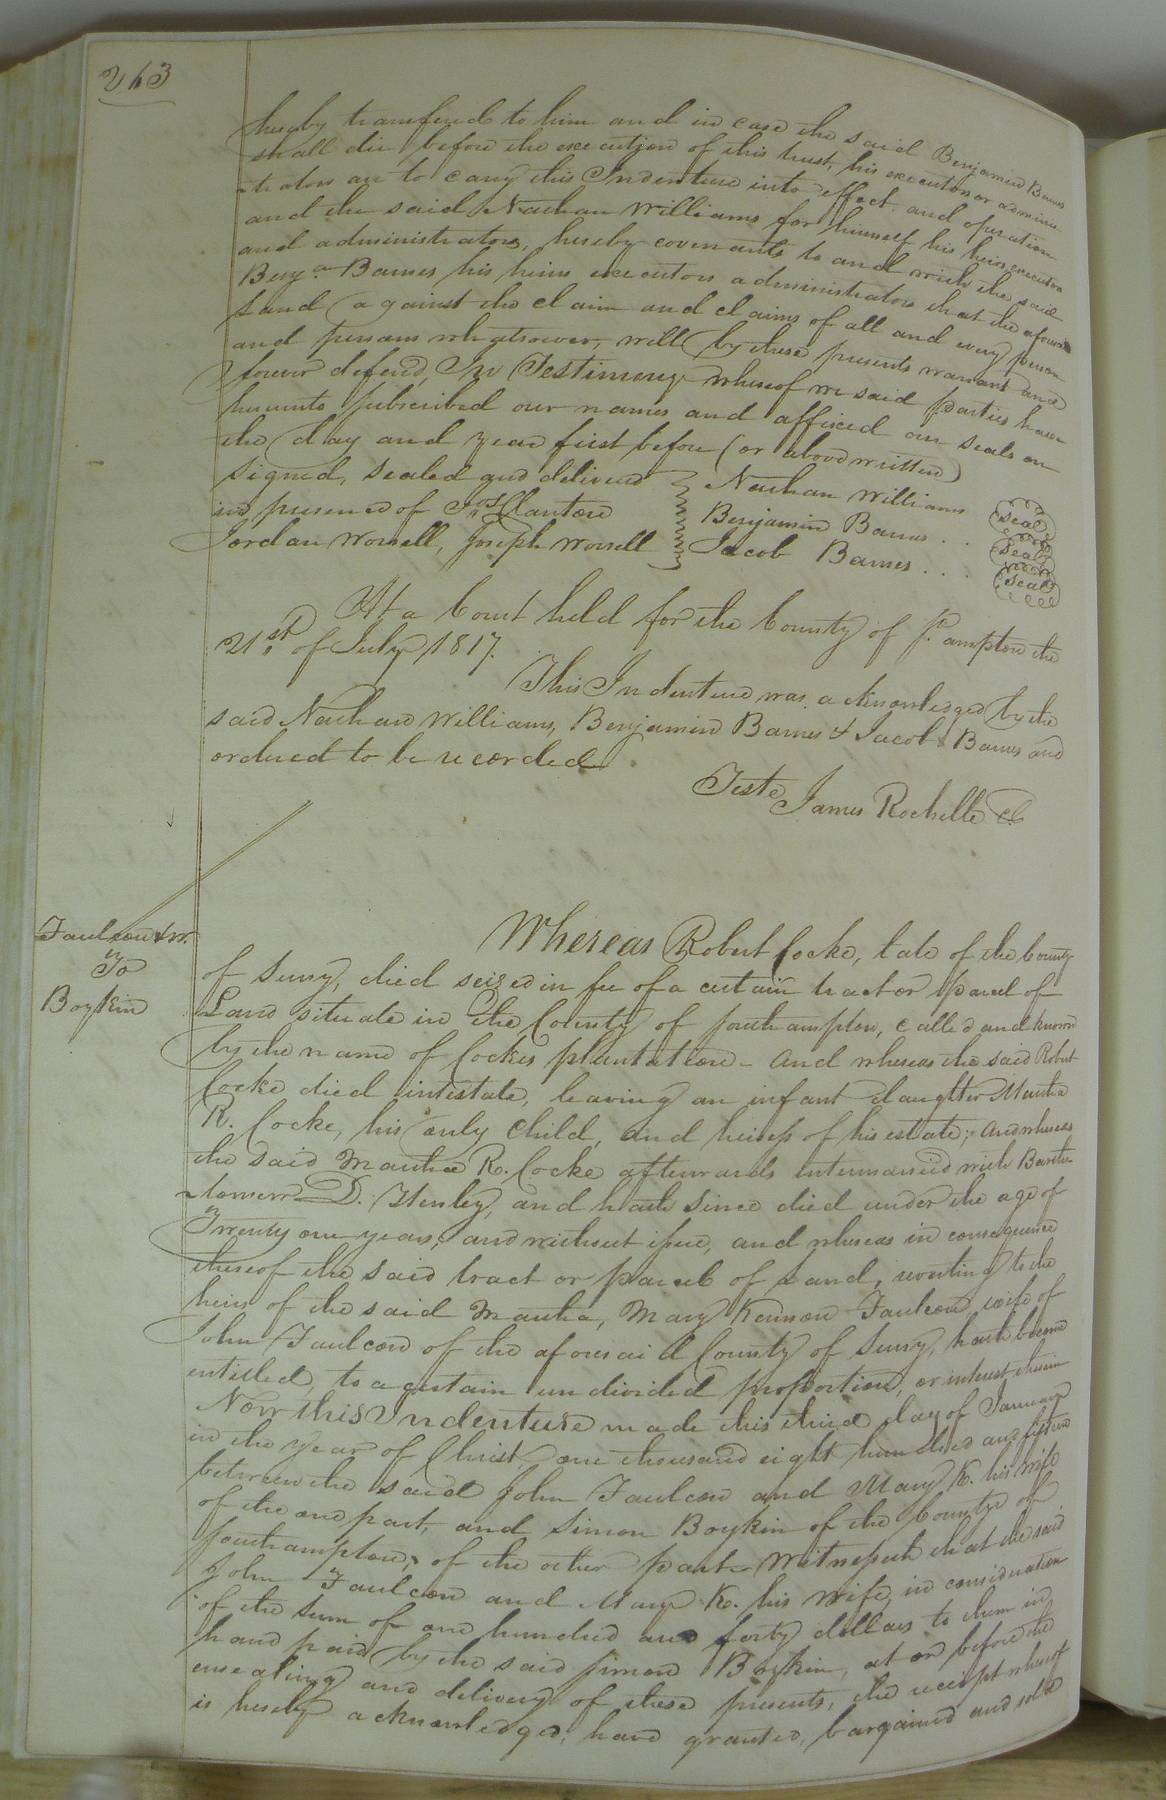 263
hereby transfered to him and in case the said Benjamin Barnes
shall die before the execution of this trust, his executors or adminis-
-trators are to carry this Indenture into effect and operation
and the said Nathan Williams for himself his heirs executors
and administrators, hereby covenants to and with the said
Benjn Barnes his heirs executors administrators that the aforesd
Land against the claim and claims of all and every person
and persons whatsoever, will by these presents warrant and
forever defend, In Testimony whereof we said parties have
hereunto subscribed our names and affixed our seals on
the day and year first before (or above written)
Signed, sealed and delivered
in presence of Clanton
Jordan Worrell, Joseph Worrell
Nathan Williams seal
Benjamin Barnes . . seal
Jacob Barnes . . . seal
At a Court held for the County of So. ampton the
21st of July 1817.
This Indenture was acknowledged by the
said Nathan Williams, Benjamin Barnes & Jacob Barnes and
ordered to be recorded
Teste James Rochelle Cl
Faulcon & W.
To
Boykin
Whereas Robert Cocke, late of the County
of Surry, died seized in fee of a certain tract or parcel of
Land situate in the County of Southampton, called and known
by the name of Cockes plantation - and whereas the said Robert
Cocke died intestate, leaving an infant daughter Martha
R. Cocke, his only Child, and heiress of his estate; and whereas
the said Martha R. Cocke afterwards intermarried with Bartho-
-lomew D. Henley, and hath since died under the age of
Twenty one years, and without issue, and whereas in consequence
thereof the said tract or parcel of Land, reverting to the
heirs of the said Martha, Mary Kennon Faulcon wife of
John Faulcon of the aforesaid County of Surry, hath become
entitled, to a certain undivided proportion, or interest therein
Now this Indenture made this third day of January
in the year of Christ one thousand eight hundred and fifteen
between the said John Faulcon and Mary K. his wife
of the one part, and Simon Boykin of the County of
Southampton, of the other part Witnesseth that the said
John Faulcon and Mary K. his wife, in consideration
of the sum of one hundred and forty dollars to them in
hand paid by the said Simon Boykin, at or before the
ensealing and delivery of these presents, the receipt whereof
is hereby acknowledged, have granted, bargained and sold